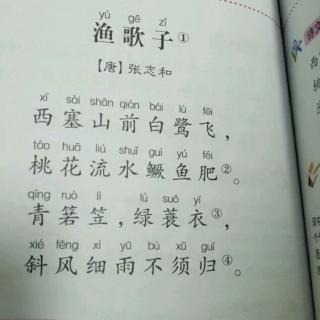 yú gē zǐ
渔歌子①
【唐】张志和
xī sài shān qián bái lù fēi
西塞山前白鹭飞，
táo huā liú shuǐ guì yú féi
桃花流水鳜鱼肥②。
qīng ruò lì lǜ suō yī
青箬笠，绿蓑衣③，
xié fēng xì yǔ bù xū guī
斜风细雨不须归④。